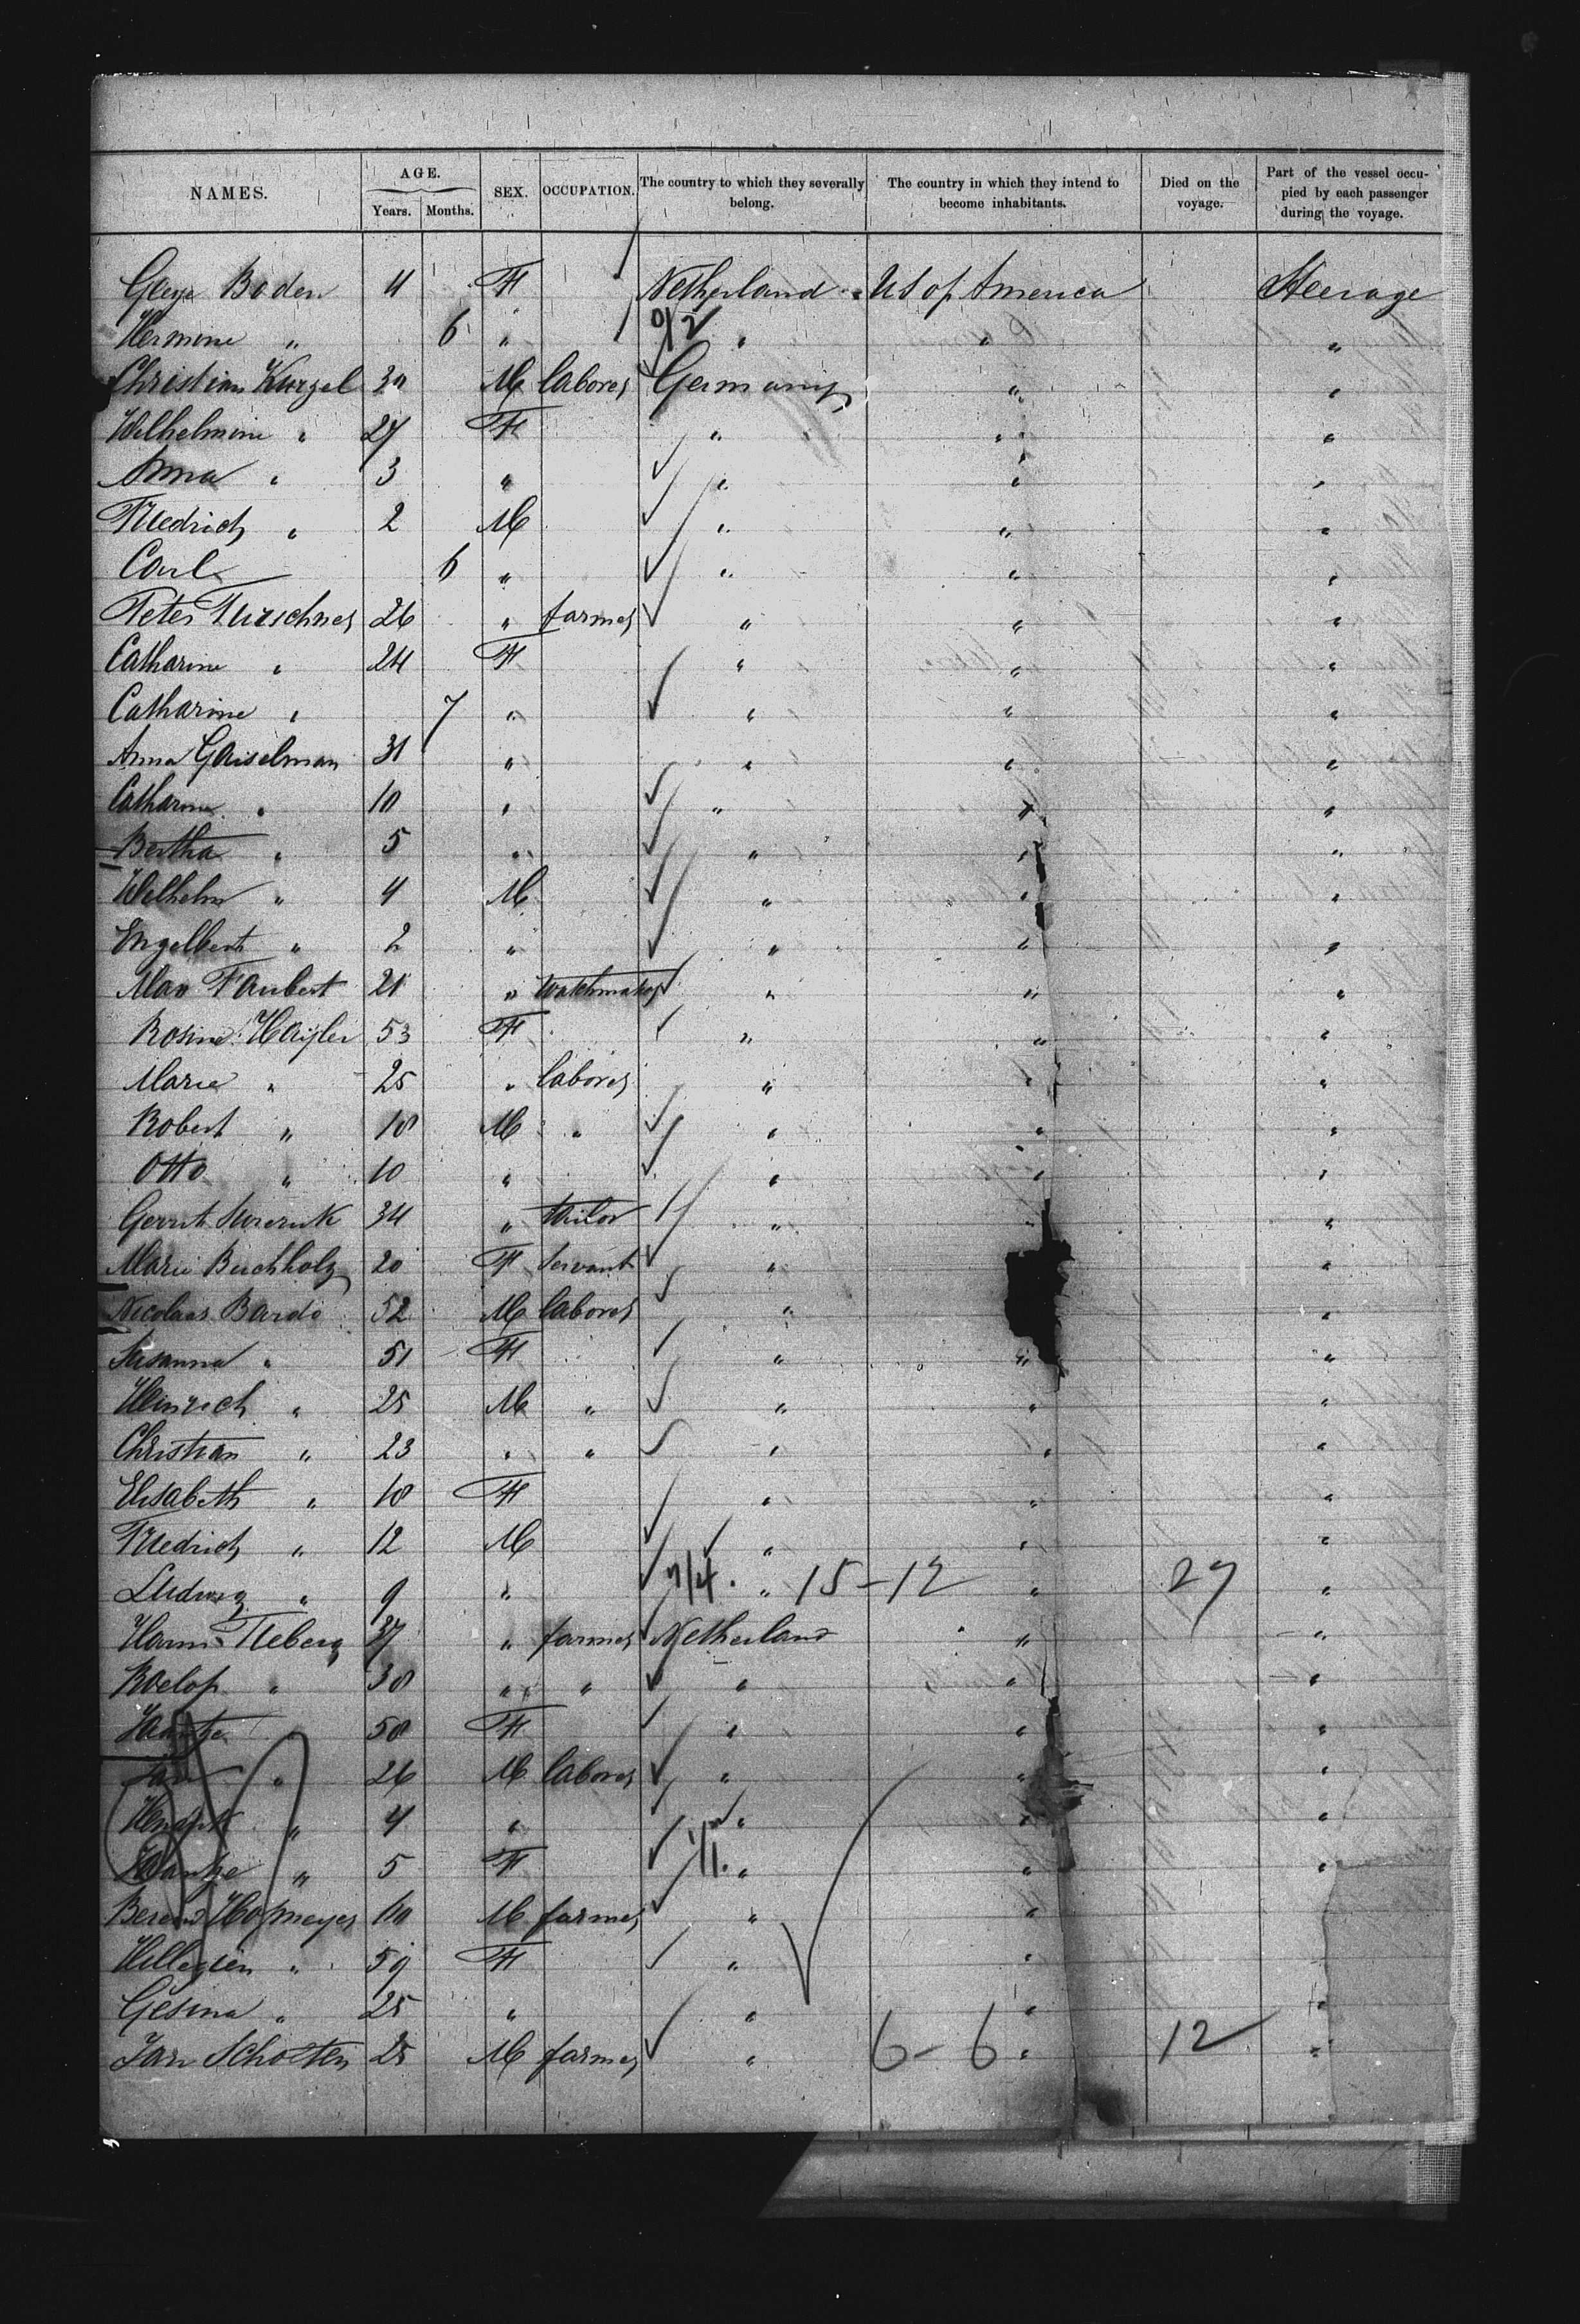 NAMES. AGE. Years. Months. SEX. OCCUPATION. The country to which they severally belong. The country in which they intend to become inhabitants. Died on the voyage. Part of the vessel occupied by each passenger during the voyage.
Boden 4 F Netherland US of America Steerage
Hermine " 6 " " " "
9/2
Christian Kurzel 30 M labores Germany " "
Wilhelmine " 27 F " " "
Anna " 3 " " " "
Friedrich " 2 M " " "
Carl 6 " " " "
Peter 26 " farmer " " "
Catharine " 24 F " " "
Catharine " 7 " " " "
Anna Gaiselman 31 " " " "
Catharine " 10 " " " "
Bertha " 5 " " " "
Wilhelm " 4 M " " "
Engelbert " 2 " " " "
Max Faubert 21 " watchmaker " " "
Rosine 53 F " " "
Marie " 25 " labores " " "
Robert " 18 M " " " "
Otto " 10 " " " "
Gerrit 34 " tailor " "
Marie Buchholz 20 F Servant " "
Nicolaas Bardo 52 M labores " "
Susanna " 51 F " " "
Heinrich " 25 M " " " "
Christian " 23 " " " " "
Elisabeth " 18 F " " "
Friedrich " 12 M " " "
Ludwig " 9 " 7/4. " 15-12 " 27 "
Harm 37 " farmer Netherland " "
Roelof " 38 " " " " "
58 F " " "
Jan " 26 M labores " " "
Hendrik " 4 " " " "
" 5 F 11. " " "
Berend Hofmeyer 60 M farmer " " "
Hillegien " 59 F " " "
Gesina " 25 " " " "
Jan Scholten 25 M farmer " 6-6 " 12 "